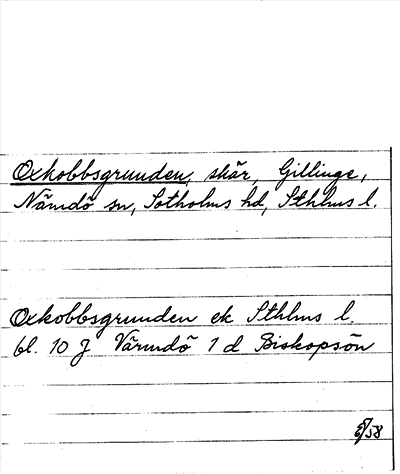 Oxkobbsgrunden, skär, Gillinge,
Nämdö sn, Sotholms hd, Sthlms l.
Oxkobbsgrunden ek Sthlms l.
bl. 10 J Värmdö 1 d Biskopsön
/58